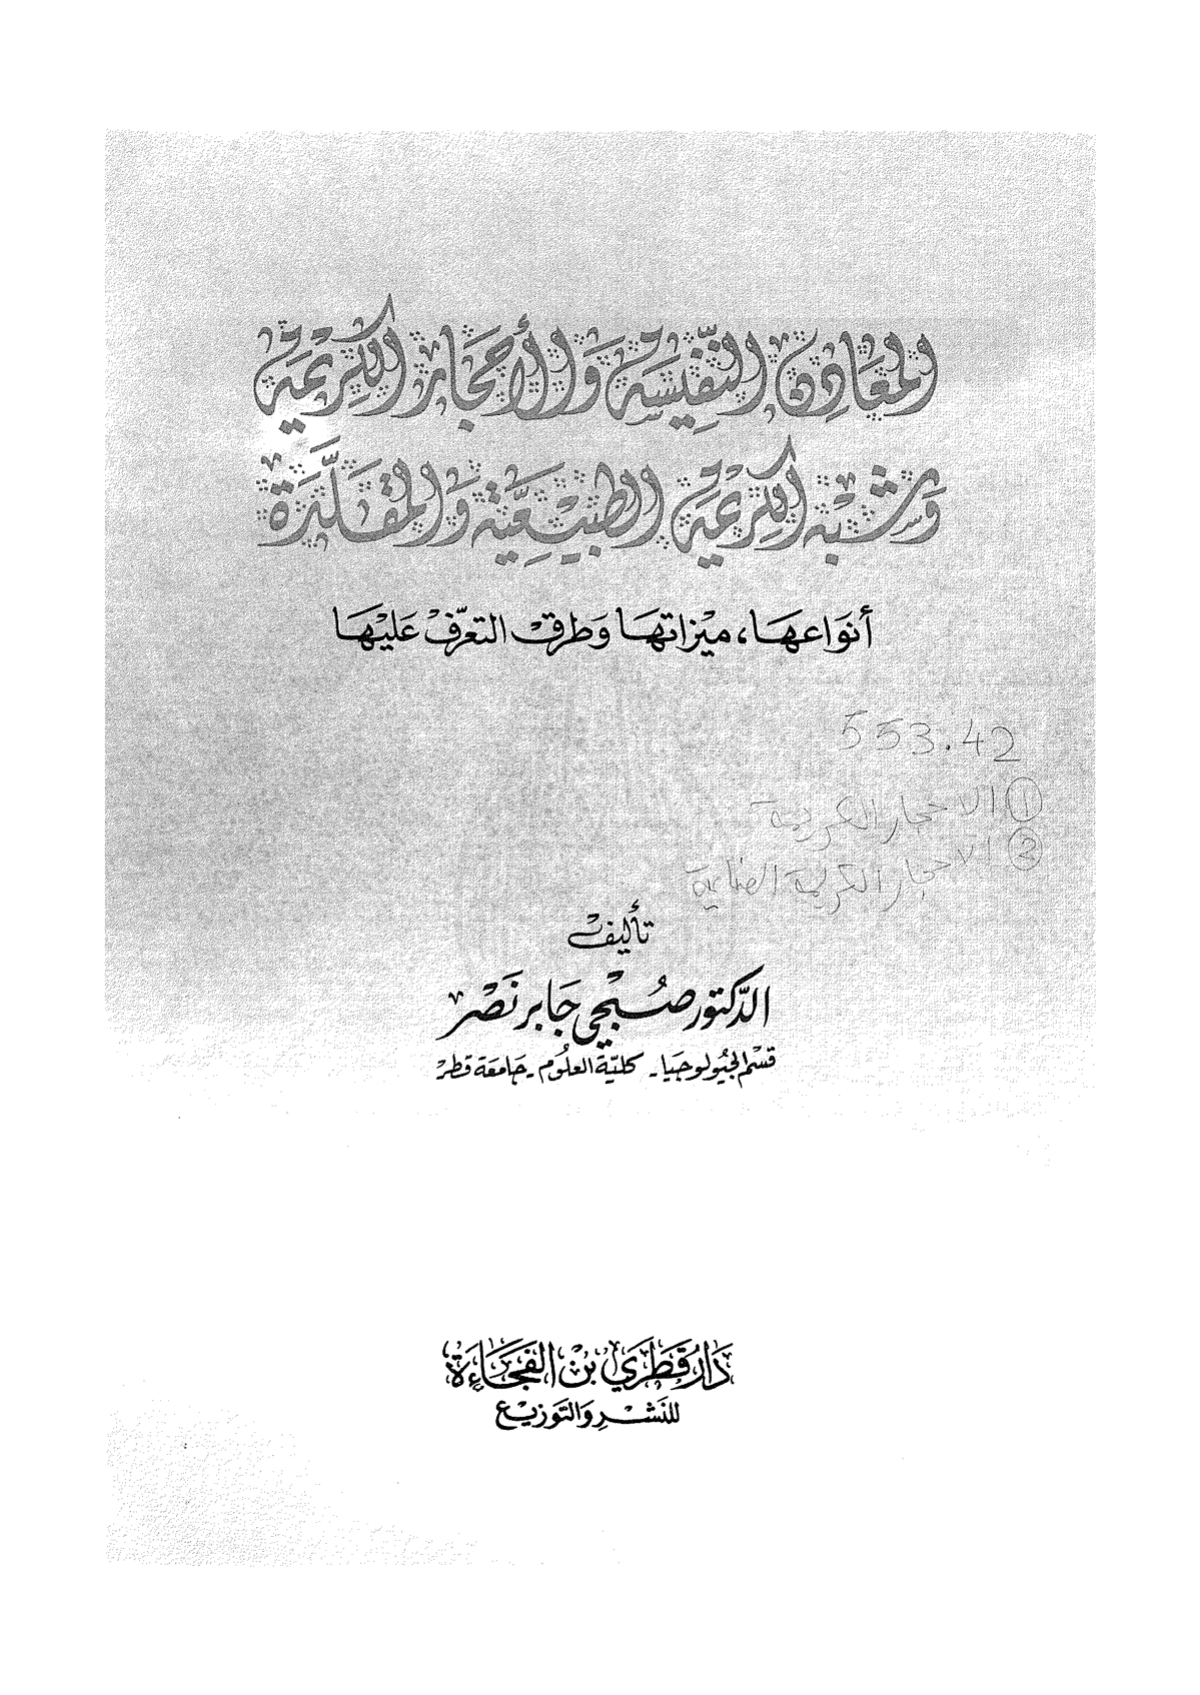 المعَادِن النَّفِيسَة وَالأحجَار الكَرِيمَة
وَشبْه الكَرِيمَة الطبيعيَّة وَالمقَلَّدَة
أنوَاعهَا، ميْزاتهَا وَطرقْ التعرّفْ عَليْهَا
553.42
① الاحجار الكريمة
② الاحجار الكريمة الصناعية
تأليفْ
الدّكتور صُبْحِي جَابر نَصْر
قسْم الجيُولوجيَا - كليّة العلُوم - جَامعَة قطرْ
دَارُ قَطَرَي بْن الفَجَاءَة
للنَشْرِ وَالتَوزيْع